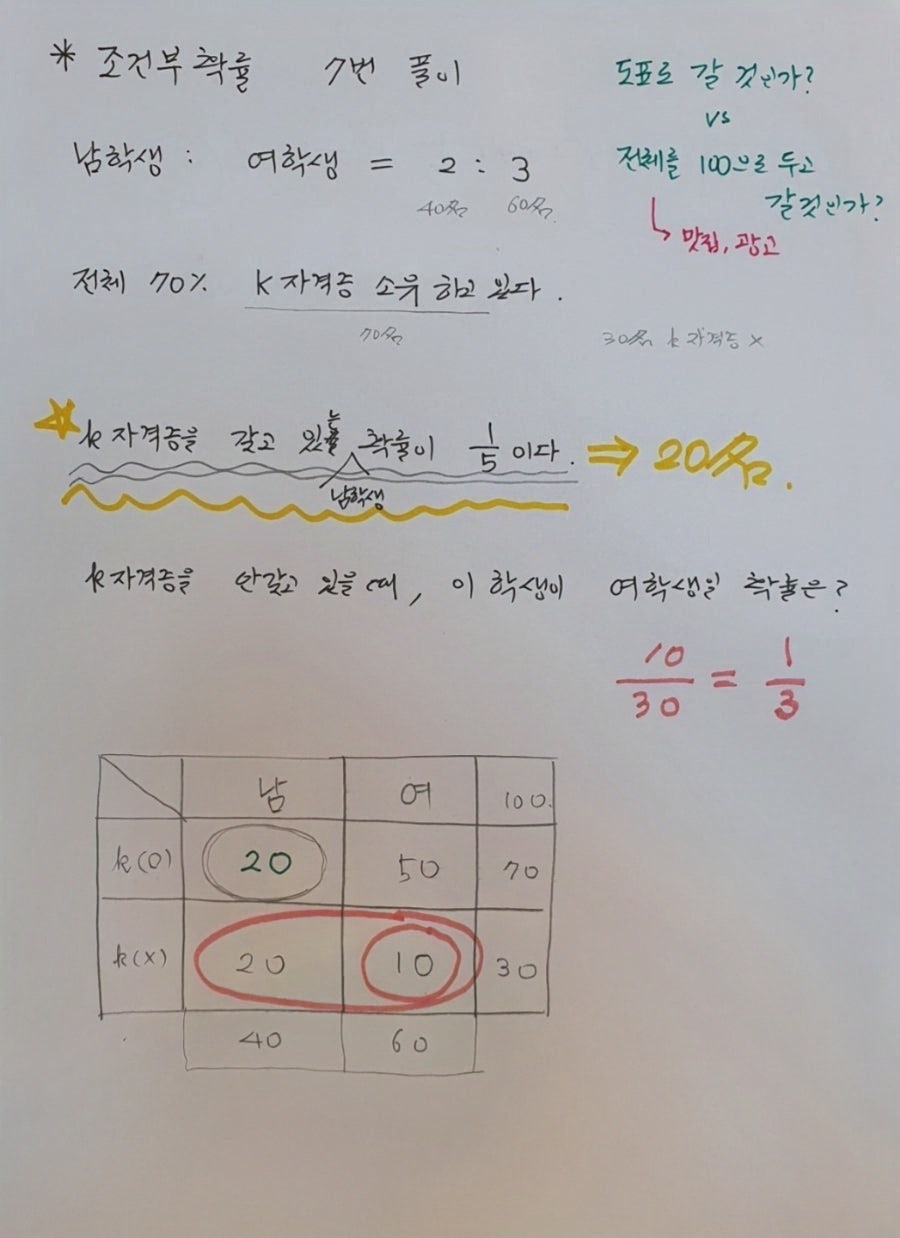 * 조건부 확률 7번 풀이
도표로 갈 것인가?
vs
전체를 100으로 두고
갈것인가?
↳ 맛집, 광고
남학생 : 여학생 = 2 : 3
40名 60名
전체 70% k 자격증 소유 하고 있다.
70名
30名 k 자격증 x
k 자격증을 갖고 있는 확률이 1/5 이다. ⇒ 20名.
남학생
k자격증을 안갖고 있을 때, 이 학생이 여학생일 확률은?
10/30 = 1/3
남 여 100.
k(O) 20 50 70
k(x) 20 10 30
40 60